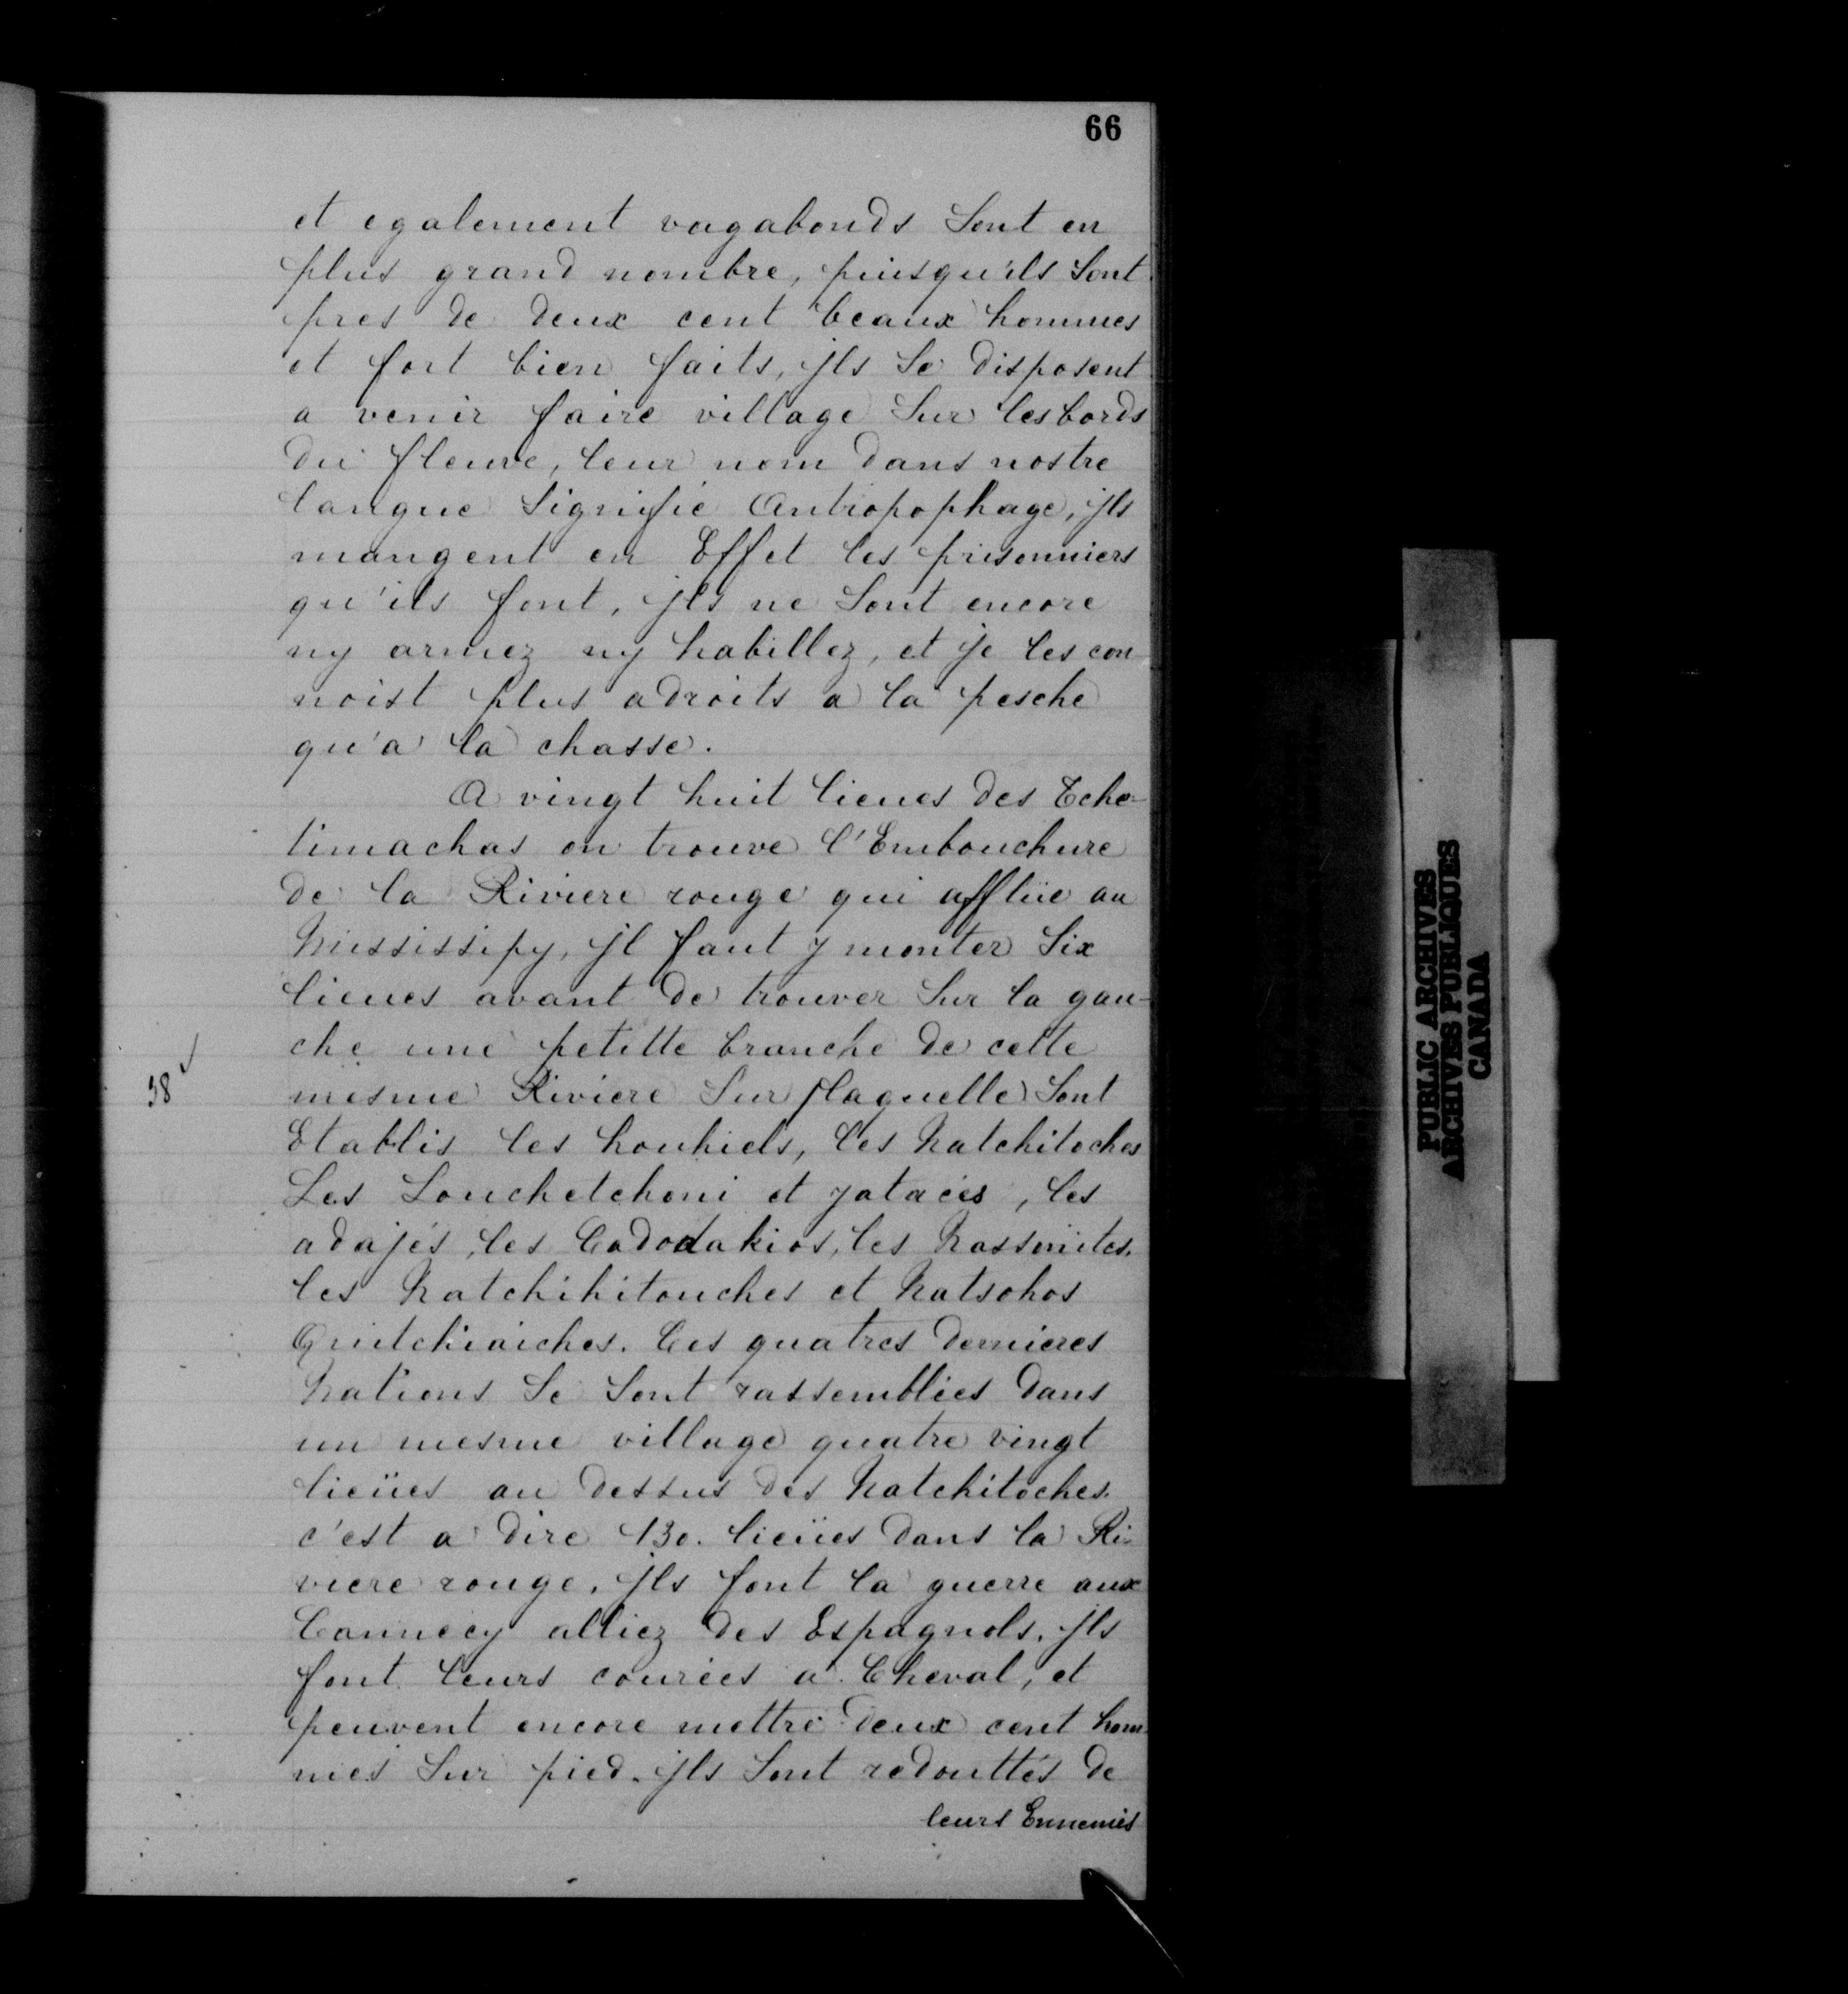 66
et egalement vagabonds Sont en
plus grand nombre, puisqu'ils Sont
pres de deux cent beaux hommes
et fort bien faits, jls Se disposent
a venir faire village Sur les bords
du fleuve, leur nom dans nostre
langue Signifie Antropophage, jls
mangent en Effet les prisonniers
qu'ils font, jls ne Sont encore
ny armez ny habillez, et je les con
noist plus adroits a la pesche
qu'a la chasse.
A vingt huit lieues des Tche-
timachas on trouve l'Embouchure
de la Riviere rouge qui afflüe au
Mississipy, jl faut y monter Six
lieues avant de trouver Sur la gau-
che une petitte branche de cette
38
mesme Riviere Sur laquelle Sont
Etablis les houhiels, les Natchitoches
Les Louchetchoni et yatacés, les
adajés, les Cadodakios, les Nassoüites,
les Natchihitouches et Natsohos
Quitchiaiches. Ces quatres dernieres
Nations Se Sont rassemblées dans
un mesme village quatre vingt
lieües au dessus des Natchitoches.
c'est a dire 130. lieües dans la Ri-
viere rouge. jls font la guerre aux
Cannecy alliez des Espagnols. jls
font leurs courées a Cheval, et
peuvent encore mettre deux cent hom
mes Sur pied. jls Sont redouttés de
leurs Ennemis
PUBLIC ARCHIVES
ARCHIVES PUBLIQUES
CANADA